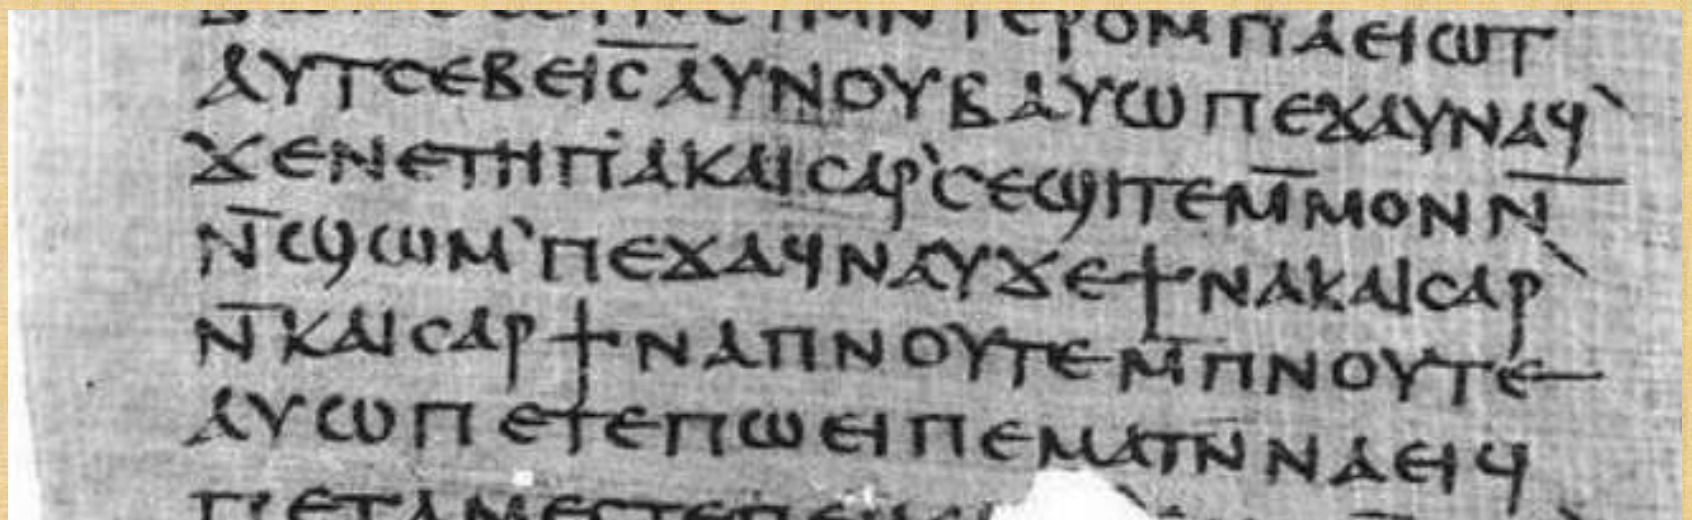 ⲧⲉⲣⲟⲙⲡⲁⲉⲓⲱⲧ
ⲁⲩⲧⲥⲉⲃⲉⲓ̅ⲥ̅ⲁⲩⲛⲟⲩⲃⲁⲩⲱⲡⲉϫⲁⲩⲛⲁϥ`
ϫⲉⲛⲉⲧⲏⲡⲁⲕⲁⲓⲥⲁⲣ`ⲥⲉϣⲓⲧⲉⲙ̅ⲙⲟⲛⲛ̅
ⲛ̅ϣⲱⲙ`ⲡⲉϫⲁϥⲛⲁⲩϫⲉϯⲛⲁⲕⲁⲓⲥⲁⲣ`
ⲛ̅ⲕⲁⲓⲥⲁⲣϯⲛⲁⲡⲛⲟⲩⲧⲉⲙ̅ⲡⲛⲟⲩⲧⲉ
ⲁⲩⲱⲡⲉⲧⲉⲡⲱⲉⲓⲡⲉⲙⲁⲧⲛ̅ⲛⲁⲉⲓϥ